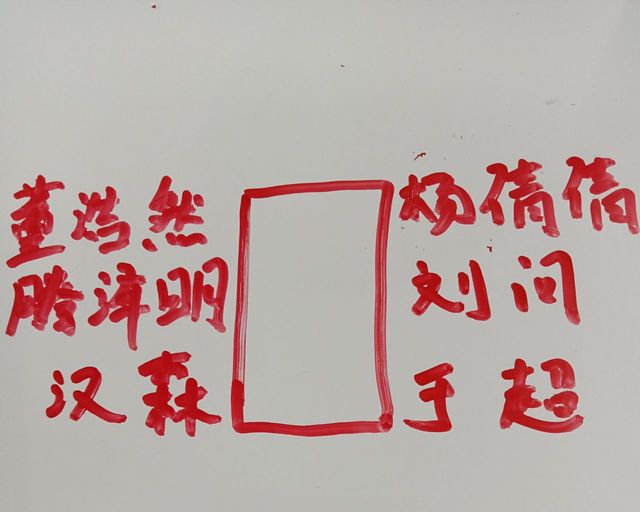 董浩然 杨倩倩
腾漳明 刘问
汉森 于超